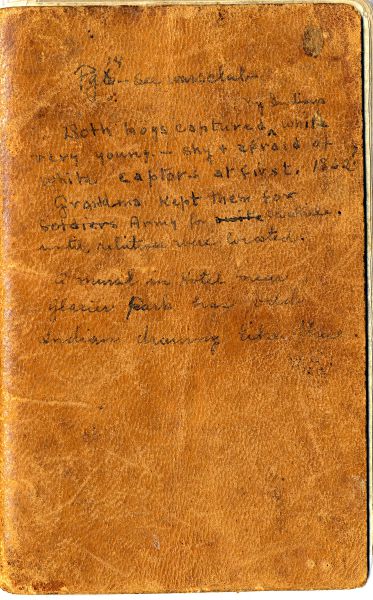 Pg 8 - see warclub
by Indians
Both boys captured ^ while
very young. - shy & afraid of
white captors at first. 18
Grandma kept them for
Soldiers Army for awhile.
until relatives were located.
A mural in Hotel near
Glacier Park has odd
Indian drawing like these.